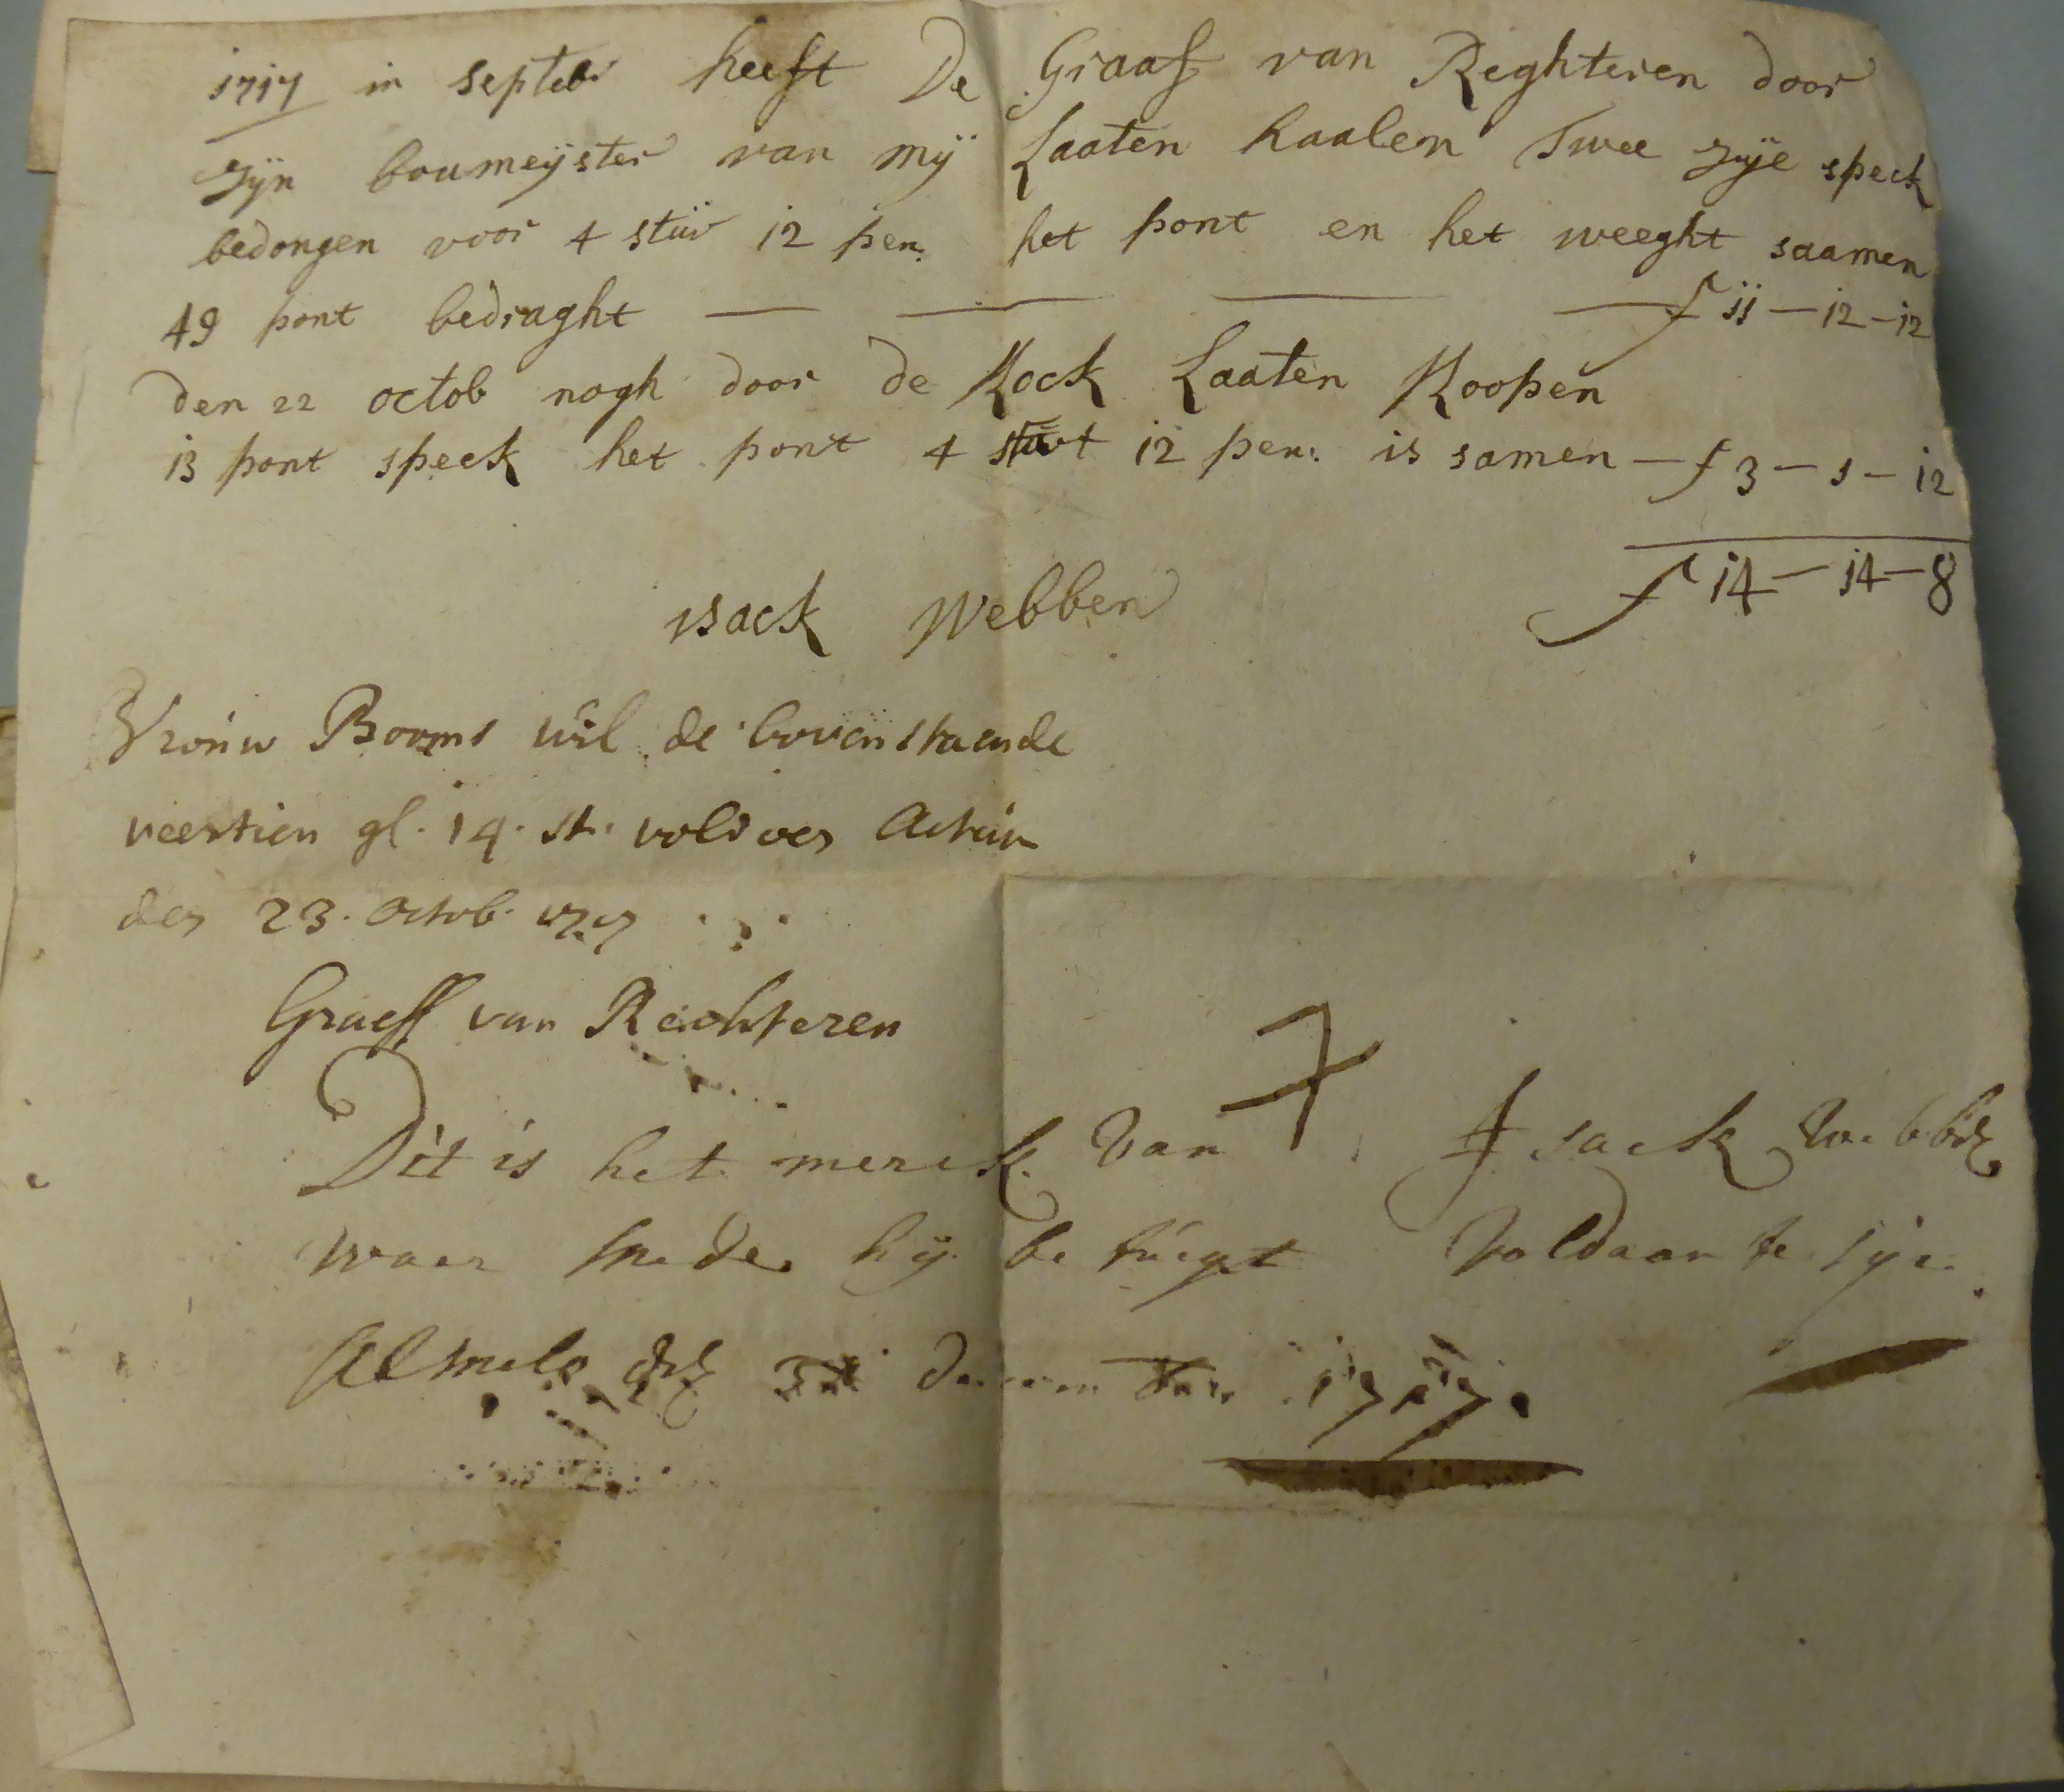 1717 in septebr heeft De Graaf van Reghteren door
zÿn boumeÿster van mÿ Laaten haalen Twee zÿe speck
bedongen voor 4 stüv 12 pen: het pont en het weeght saamen
49 pont bedraght — — — — f 11 – 12 – 12
den 22 octob nogh door de Kock Laaten Koopen
13 pont speck het pont 4 stuv 12 pen: is samen – f 3 – 1 – 12
f 14 – 14 – 8
isack Webben
Vrouw Booms wil de bovenstaende
veertien gl. 14. st. voldoen
den 23. Octob. 1717
Graeff van Rechteren
Dit is het merck van Isack Webb
waer mede hÿ betuÿgt voldaan te sÿn
Almelo den 31 1717.